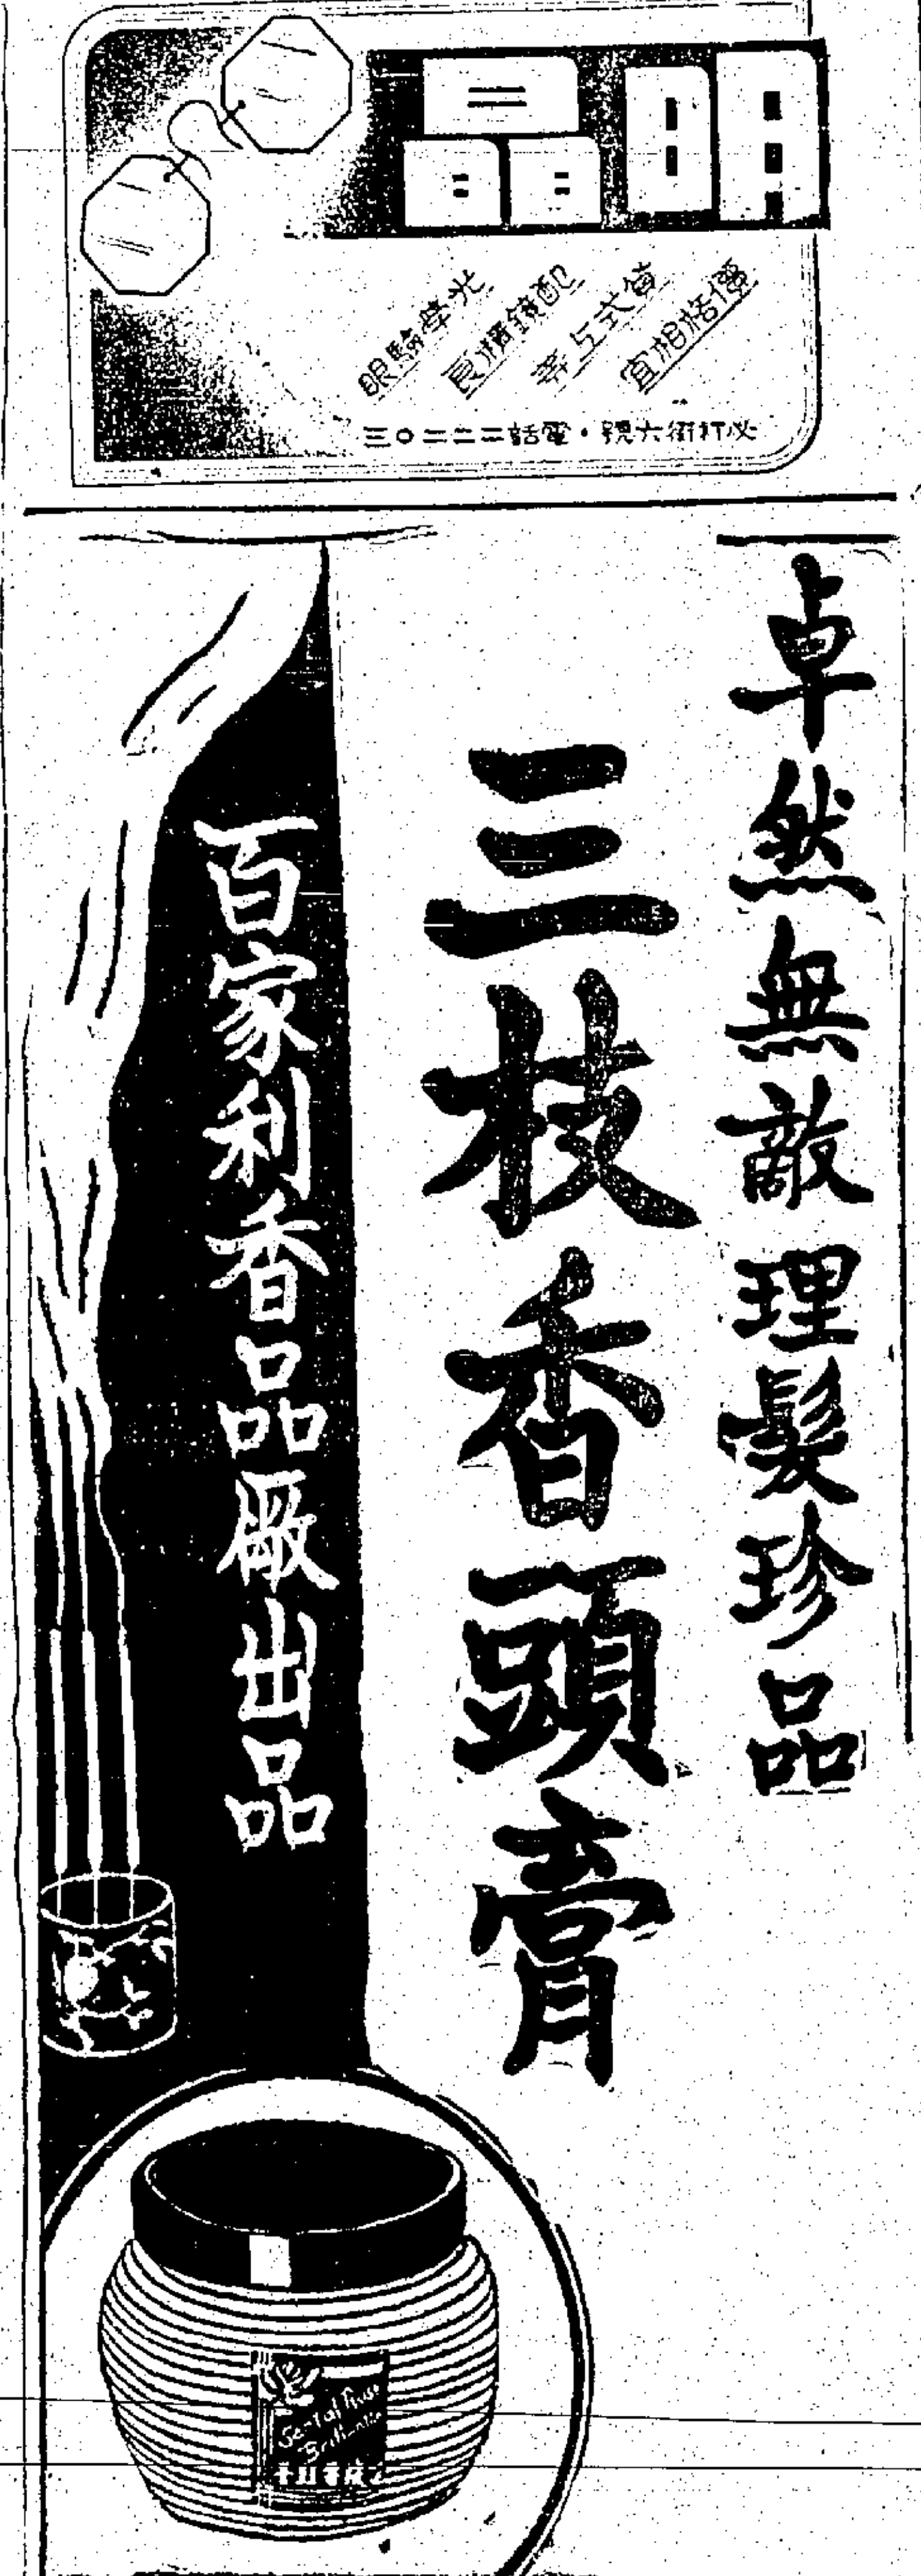 明晶
光學驗眼
配鏡精良
價格相宜
必打街六號・電話二二二〇三
卓然無敵理髮珍品
三枝香頭膏
百家利香品廠出品